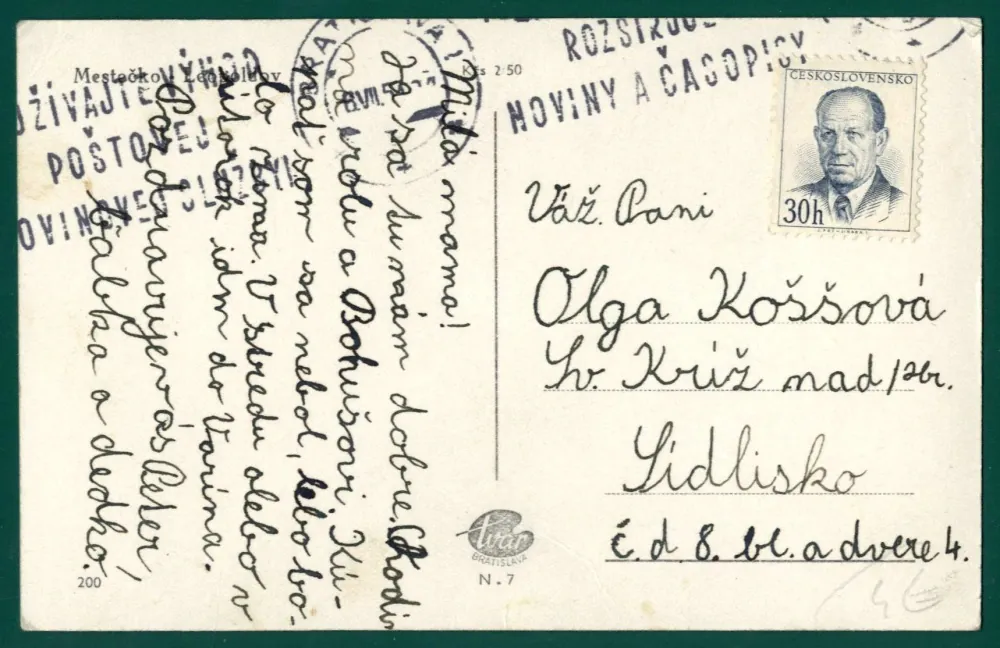 Mestečko Leopoldov
Kčs 2·50
POUŽÍVAJTE VÝHOD
POŠTOVEJ
NOVINOVEJ SLUŽBY!
ROZŠIRUJ
NOVINY A ČASOPISY
ČESKOSLOVENSKO
30h
Milá mama!
Ja sa tu mám dobre. Chodím
na a Bohušovi. Kú-
pať som sa nebol, lebo bo-
lo zima. V stredu alebo v
útorok idm do Varína.
Pozdravuje vás Peter,
babka a dedko.
Váž. Pani
Olga Koššová
Sv. Kríž nad /Hr.
Sídlisko
č. d 8. bl. a dvere 4.
tvar
BRATISLAVA
N. 7
200
4€